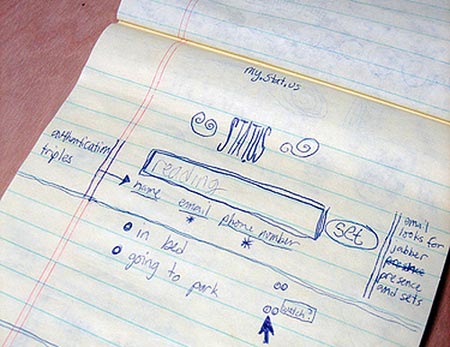 my.stat.us
STATUS
authentication
triples
reading
name email phone number
set
in bed
going to park
watch?
email
looks for
jabber
presence
and sets